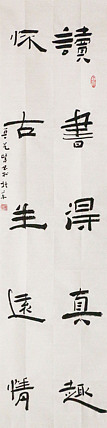 讀書得真趣
怀古生遠情